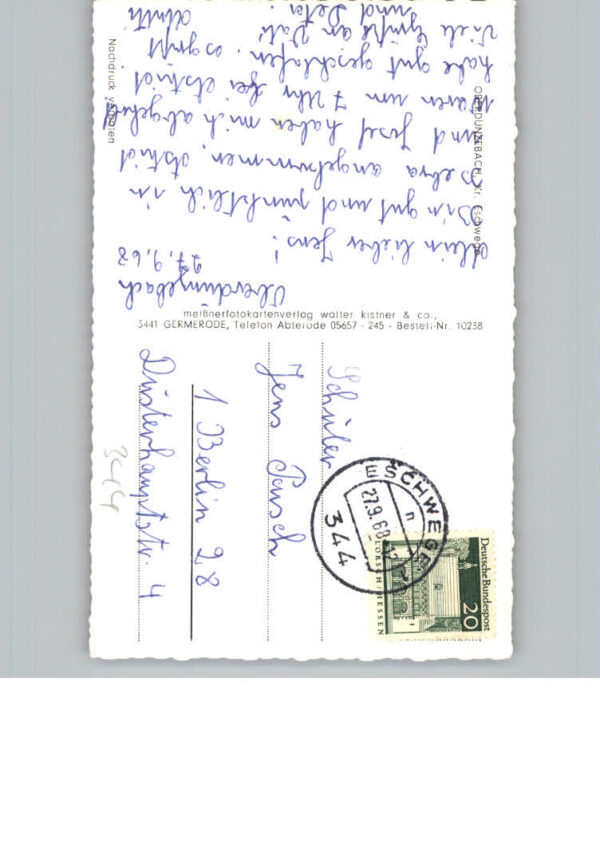 Oberdünzebach
27.9.68
Mein lieber Jens!
Bin gut und pünktlich in
Bebra angekommen, Astrid
und Josef haben mich abgeholt
Waren um 7 Uhr bei Astrid
habe gut geschlafen.
Viele Grüße an Vati
und
Mutti
OBERDÜNZEBACH, Kr. Eschwege
Nachdruck verboten
meißnerfotokartenverlag walter kistner & co.,
3441 GERMERODE, Telefon Abterode 05657 - 245 - Bestell-Nr. 10238
Schüler
Jens Pusch
1 Berlin 28
Düsterhauptstr. 4
344
ESCHWEGE
27.9.68-12
344
Deutsche Bundespost
20
LORSCH/HESSEN